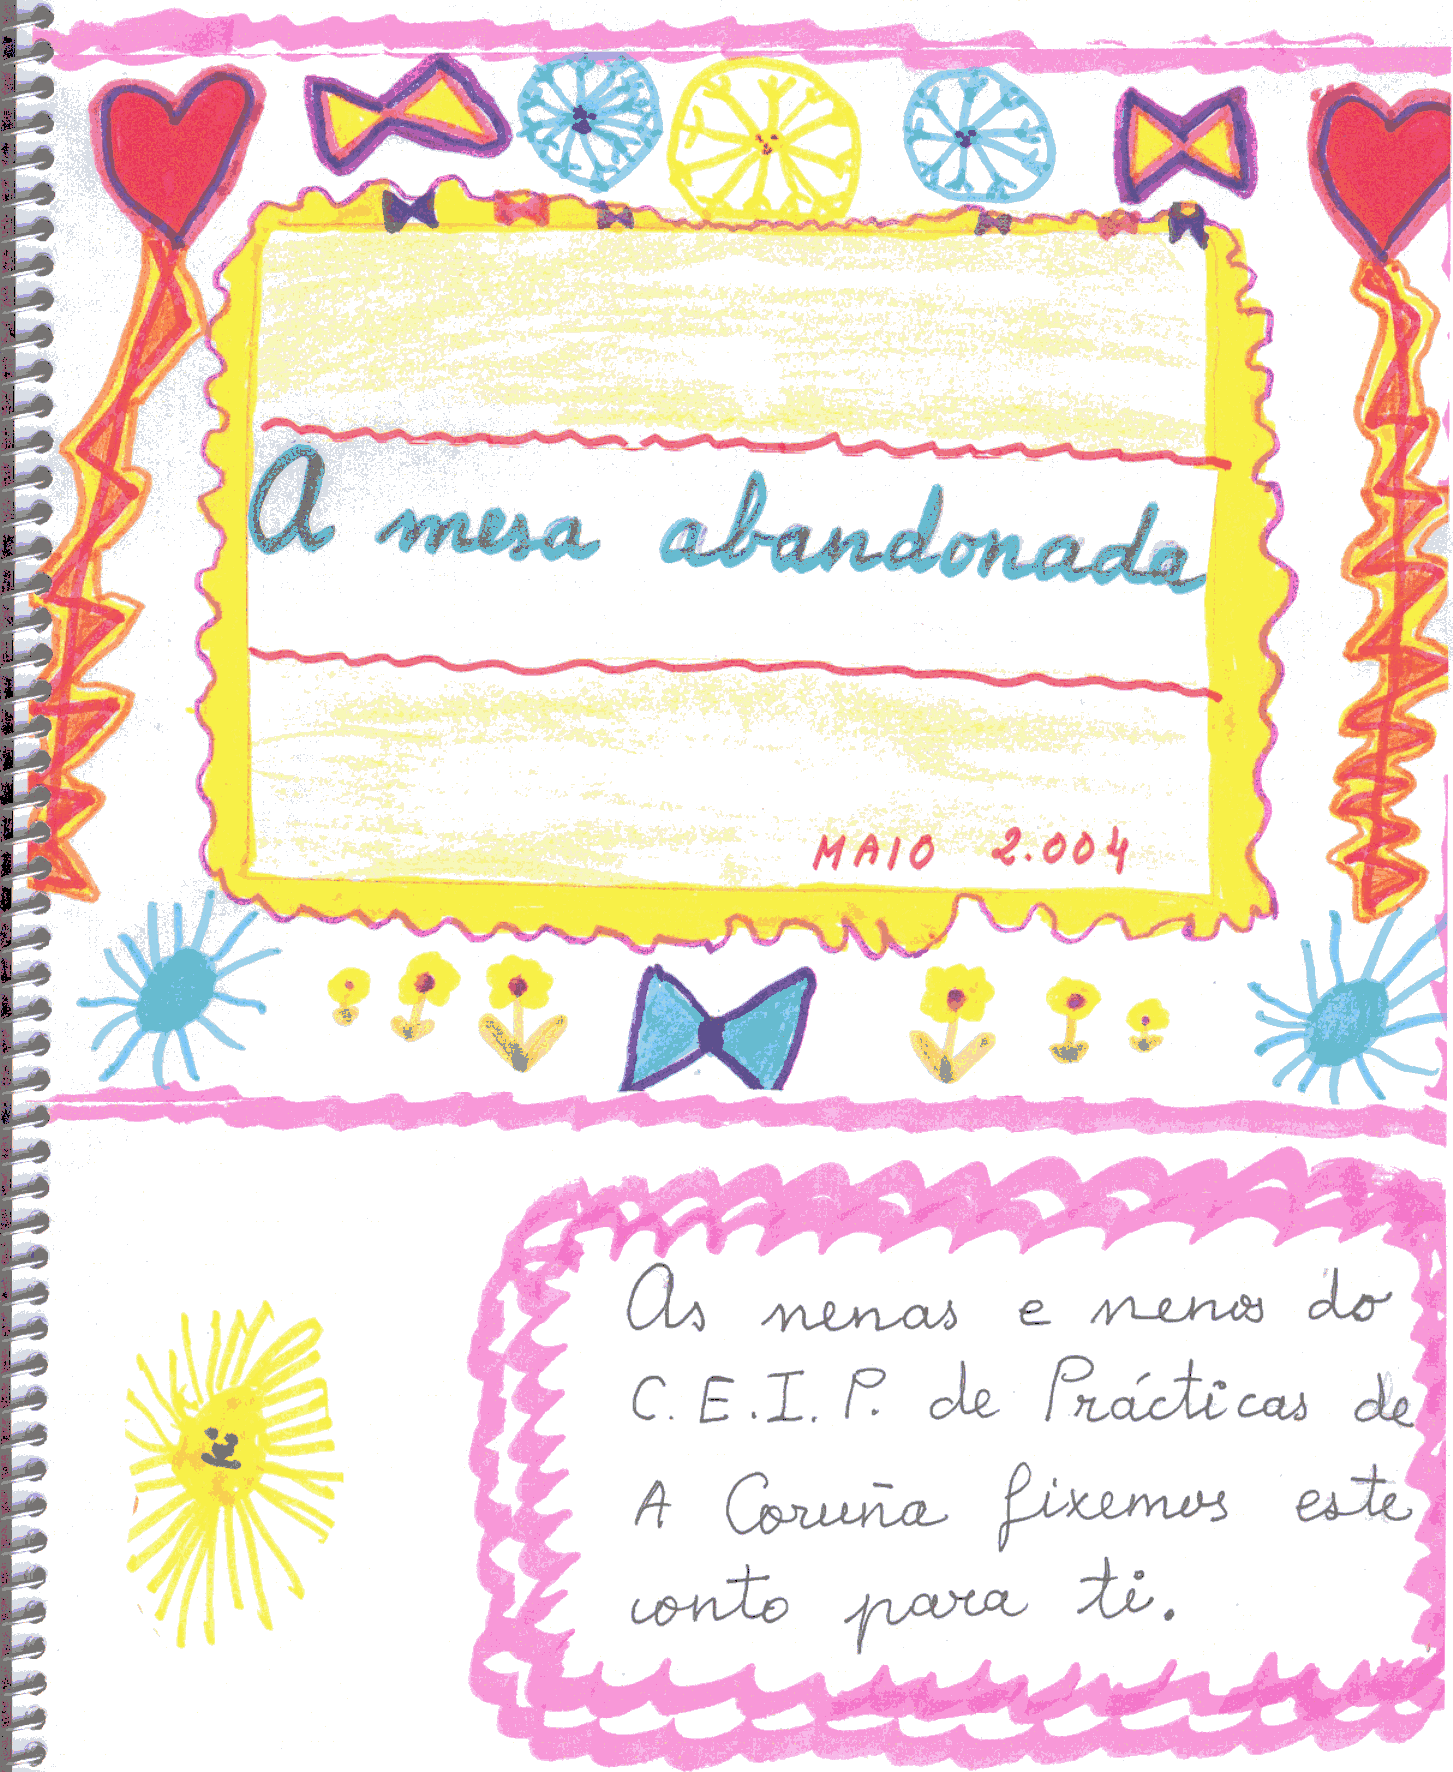 A mesa abandonada
MAIO 2.004
As nenas e nenos do
C.E.I.P. de Prácticas de
A Coruña fixemos este
conto para ti.